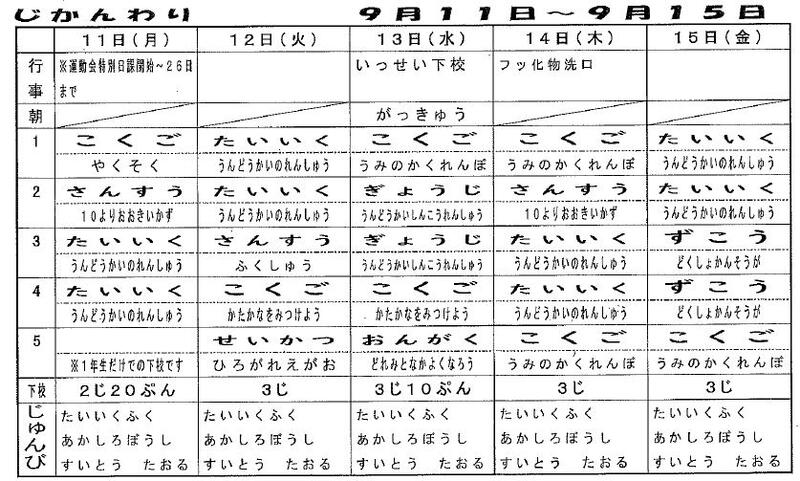 じかんわり 9月11日～9月15日
11日(月) 12日(火) 13日(水) 14日(木) 15日(金)
行事 ※運動会特別日課開始～26日 いっせい下校 フッ化物洗口
まで
朝 がっきゅう
1 こくご たいいく こくご こくご たいいく
やくそく うんどうかいのれんしゅう うみのかくれんぼ うみのかくれんぼ うんどうかいのれんしゅう
2 さんすう たいいく ぎょうじ さんすう たいいく
10よりおおきいかず うんどうかいのれんしゅう うんどうかいしんこうれんしゅう 10よりおおきいかず うんどうかいのれんしゅう
3 たいいく さんすう ぎょうじ たいいく ずこう
うんどうかいのれんしゅう ふくしゅう うんどうかいしんこうれんしゅう うんどうかいのれんしゅう どくしょかんそうが
4 たいいく こくご こくご たいいく ずこう
うんどうかいのれんしゅう かたかなをみつけよう かたかなをみつけよう うんどうかいのれんしゅう どくしょかんそうが
5 せいかつ おんがく こくご こくご
※1年生だけでの下校です ひろがれえがお どれみとなかよくなろう うみのかくれんぼ うみのかくれんぼ
下校 2じ20ぷん 3じ 3じ10ぷん 3じ 3じ
じゅんび たいいくふく たいいくふく たいいくふく たいいくふく たいいくふく
あかしろぼうし あかしろぼうし あかしろぼうし あかしろぼうし あかしろぼうし
すいとう たおる すいとう たおる すいとう たおる すいとう たおる すいとう たおる